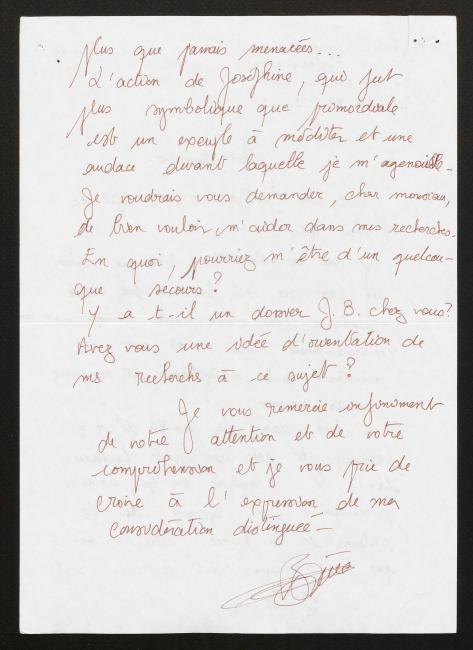 plus que jamais menacées...
L'action de Joséphine, qui fut
plus symbolique que primordiale
est un exemple à méditer et une
audace devant laquelle je m'agenouille.
Je voudrais vous demander, cher monsieur,
de bien vouloir m'aider dans mes recherches.
En quoi, pourriez m'être d'un quelcon-
que secours?
Y a t-il un dossier J. B. chez vous?
Avez vous une idée d'orientation de
mes recherches à ce sujet?
Je vous remercie infiniment
de votre attention et de votre
compréhension et je vous prie de
croire à l'expression de ma
considération distinguée —